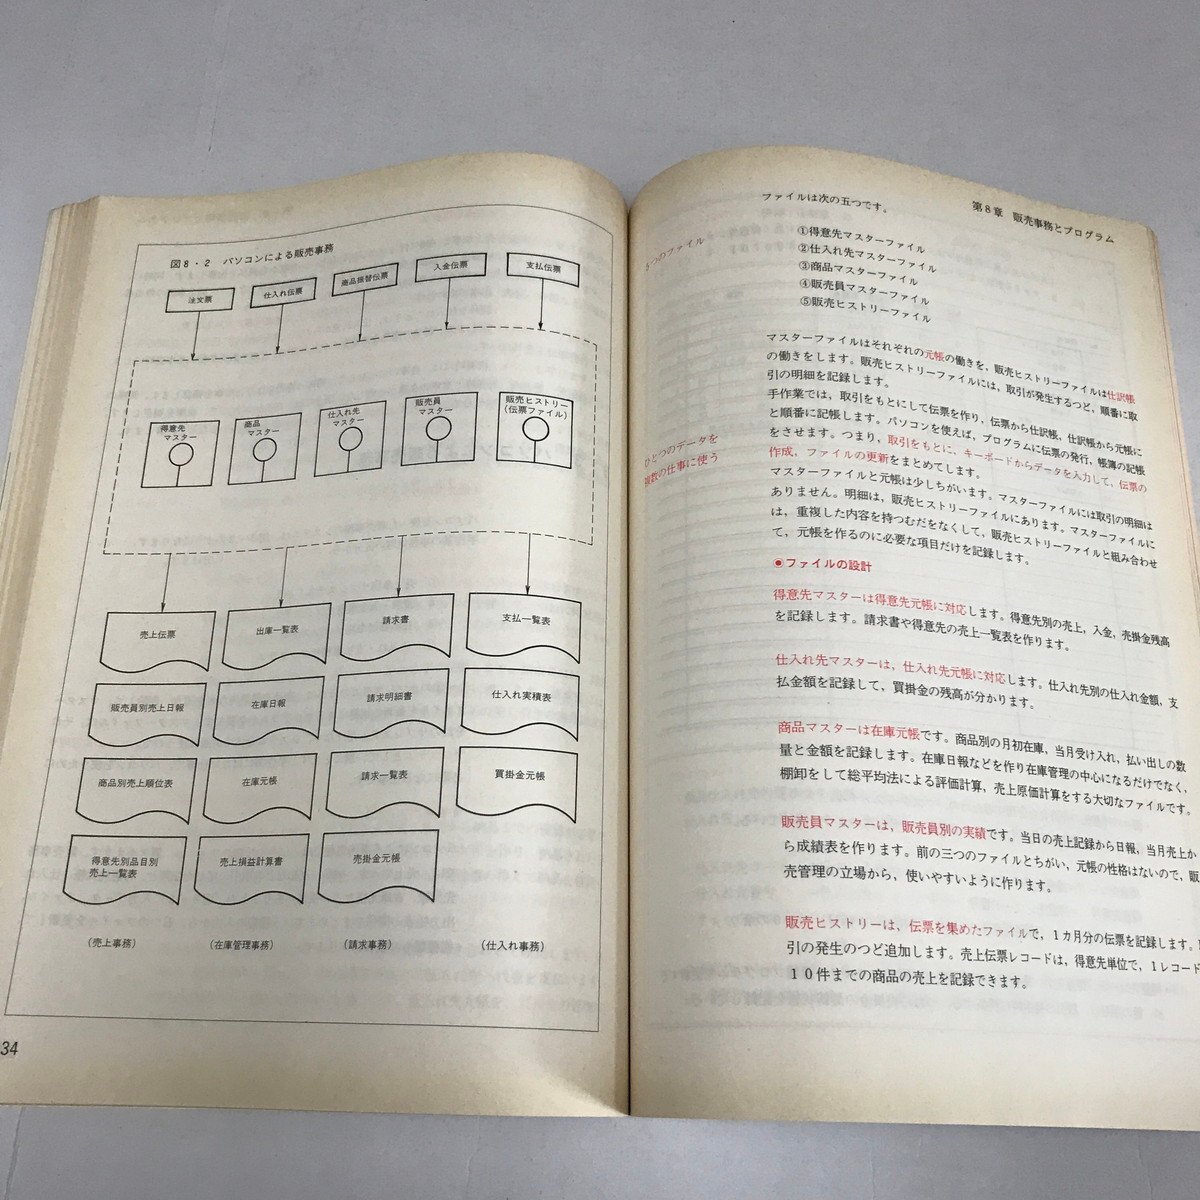 図8・2 パソコンによる販売事務
注文票
仕入れ伝票
商品振替伝票
入金伝票
支払伝票
得意先
マスター
商品
マスター
仕入れ先
マスター
販売員
マスター
販売ヒストリー
(伝票ファイル)
売上伝票
出庫一覧表
請求書
支払一覧表
販売員別売上日報
在庫日報
請求明細書
仕入れ実積表
商品別売上順位表
在庫元帳
請求一覧表
買掛金元帳
得意先別品目別
売上一覧表
売上損益計算書
売掛金元帳
(売上事務)
(在庫管理事務)
(請求事務)
(仕入れ事務)
34
第8章 販売事務とプログラム
ファイルは次の五つです。
5つのファイル
①得意先マスターファイル
②仕入れ先マスターファイル
③商品マスターファイル
④販売員マスターファイル
⑤販売ヒストリーファイル
マスターファイルはそれぞれの元帳の働きを、販売ヒストリーファイルは仕訳帳
の働きをします。販売ヒストリーファイルには、取引が発生するつど、順番に取
引の明細を記録します。
手作業では、取引をもとにして伝票を作り、伝票から仕訳帳、仕訳帳から元帳に
と順番に記帳します。パソコンを使えば、プログラムに伝票の発行、帳簿の記帳
をさせます。つまり、取引をもとに、キーボードからデータを入力して、伝票の
作成、ファイルの更新をまとめてします。
ひとつのデータを
複数の仕事に使う
マスターファイルと元帳は少しちがいます。マスターファイルには取引の明細は
ありません。明細は、販売ヒストリーファイルにあります。マスターファイルに
は、重複した内容を持つむだをなくして、販売ヒストリーファイルと組み合わせ
て、元帳を作るのに必要な項目だけを記録します。
◉ファイルの設計
得意先マスターは得意先元帳に対応します。得意先別の売上、入金、売掛金残高
を記録します。請求書や得意先の売上一覧表を作ります。
仕入れ先マスターは、仕入れ先元帳に対応します。仕入れ先別の仕入れ金額、支
払金額を記録して、買掛金の残高が分かります。
商品マスターは在庫元帳です。商品別の月初在庫、当月受け入れ、払い出しの数
量と金額を記録します。在庫日報などを作り在庫管理の中心になるだけでなく、
棚卸をして総平均法による評価計算、売上原価計算をする大切なファイルです。
販売員マスターは、販売員別の実績です。当日の売上記録から日報、当月売上か
ら成績表を作ります。前の三つのファイルとちがい、元帳の性格はないので、販
売管理の立場から、使いやすいように作ります。
販売ヒストリーは、伝票を集めたファイルで、1カ月分の伝票を記録します。
引の発生のつど追加します。売上伝票レコードは、得意先単位で、1レコード
10件までの商品の売上を記録できます。